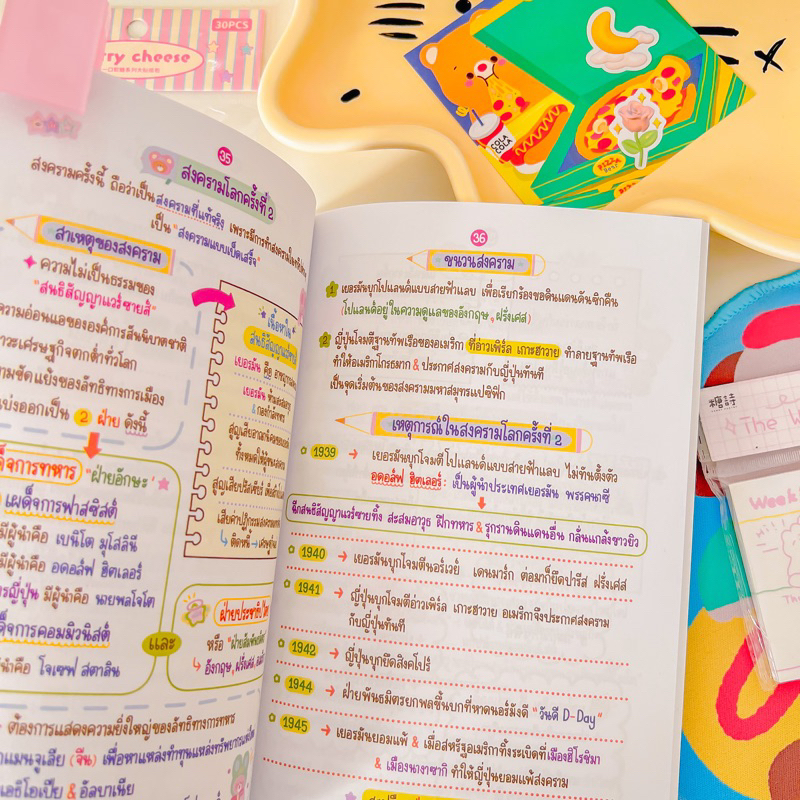 30PCS
rry cheese
COLA
COLA
PIZZA
35
สงครามโลกครั้งที่ 2
สงครามครั้งนี้ ถือว่าเป็นสงครามที่แท้จริง เพราะมีการทำสงคราม
เป็น "สงครามแบบเบ็ดเสร็จ"
สาเหตุของสงคราม
ความไม่เป็นธรรมของ
"สนธิสัญญาแวร์ซายส์"
ความอ่อนแอขององค์การสันนิบาตชาติ
วะเศรษฐกิจตกต่ำทั่วโลก
ามขัดแย้งของลัทธิทางการเมือง
แบ่งออกเป็น 2 ฝ่าย ดังนี้
ด็จการทหาร "ฝ่ายอักษะ"
เผด็จการฟาสซิสต์
มีผู้นำคือ เบนิโต มุโสลินี
มีผู้นำคือ อดอล์ฟ ฮิตเลอร์
ญี่ปุ่น มีผู้นำคือ นายพลโจโต
ด็จการคอมมิวนิสต์
นำคือ โจเซฟ สตาลิน
และ
เนื้อหาใน
สนธิสัญญาแวร์
เยอรมัน คือ
เยอรมัน
ฝ่ายประชาธิปไต
หรือ "ฝ่ายสัมพันธมิตร
อังกฤษ, ฝรั่งเศส,
ต้องการแสดงความยิ่งใหญ่ของลัทธิทางการทหาร
แมนจูเรีย (จีน) เพื่อหาแหล่งทำทุนแหล่งทรัพยากร
เอธิโอเปีย & อัลบาเนีย
36
ชนวนสงคราม
1 เยอรมันบุกโปแลนด์แบบสายฟ้าแลบ เพื่อเรียกร้องขอดินแดนดันซิกคืน
(โปแลนด์อยู่ในความดูแลของอังกฤษ, ฝรั่งเศส)
2 ญี่ปุ่นโจมตีฐานทัพเรือของอเมริกา ที่อ่าวเพิร์ล เกาะฮาวาย ทำลายฐานทัพเรือ
ทำให้อเมริกาโกรธมาก & ประกาศสงครามกับญี่ปุ่นทันที
เป็นจุดเริ่มต้นของสงครามมหาสมุทรแปซิฟิก
เหตุการณ์ในสงครามโลกครั้งที่ 2
1939 → เยอรมันบุกโจมตีโปแลนด์แบบสายฟ้าแลบ ไม่ทันตั้งตัว
อดอล์ฟ ฮิตเลอร์ : เป็นผู้นำประเทศเยอรมัน พรรคนาซี
ฉีกสนธิสัญญาแวร์ซายทิ้ง สะสมอาวุธ ฝึกทหาร & รุกรานดินแดนอื่น กลั่นแกล้งชาวยิว
1940 → เยอรมันบุกโจมตีนอร์เวย์ เดนมาร์ก ต่อมาก็ยึดปารีส ฝรั่งเศส
1941 → ญี่ปุ่นบุกโจมตีอ่าวเพิร์ล เกาะฮาวาย อเมริกาจึงประกาศสงคราม
กับญี่ปุ่นทันที
1942 → ญี่ปุ่นบุกยึดสิงคโปร์
1944 → ฝ่ายพันธมิตรยกพลขึ้นบกที่หาดนอร์มังดี "วันดี D-Day"
1945 → เยอรมันยอมแพ้ & เมื่อสหรัฐอเมริกาทิ้งระเบิดที่เมืองฮิโรชิมา
& เมืองนางาซากิ ทำให้ญี่ปุ่นยอมแพ้สงคราม
糖詩
The W
Week